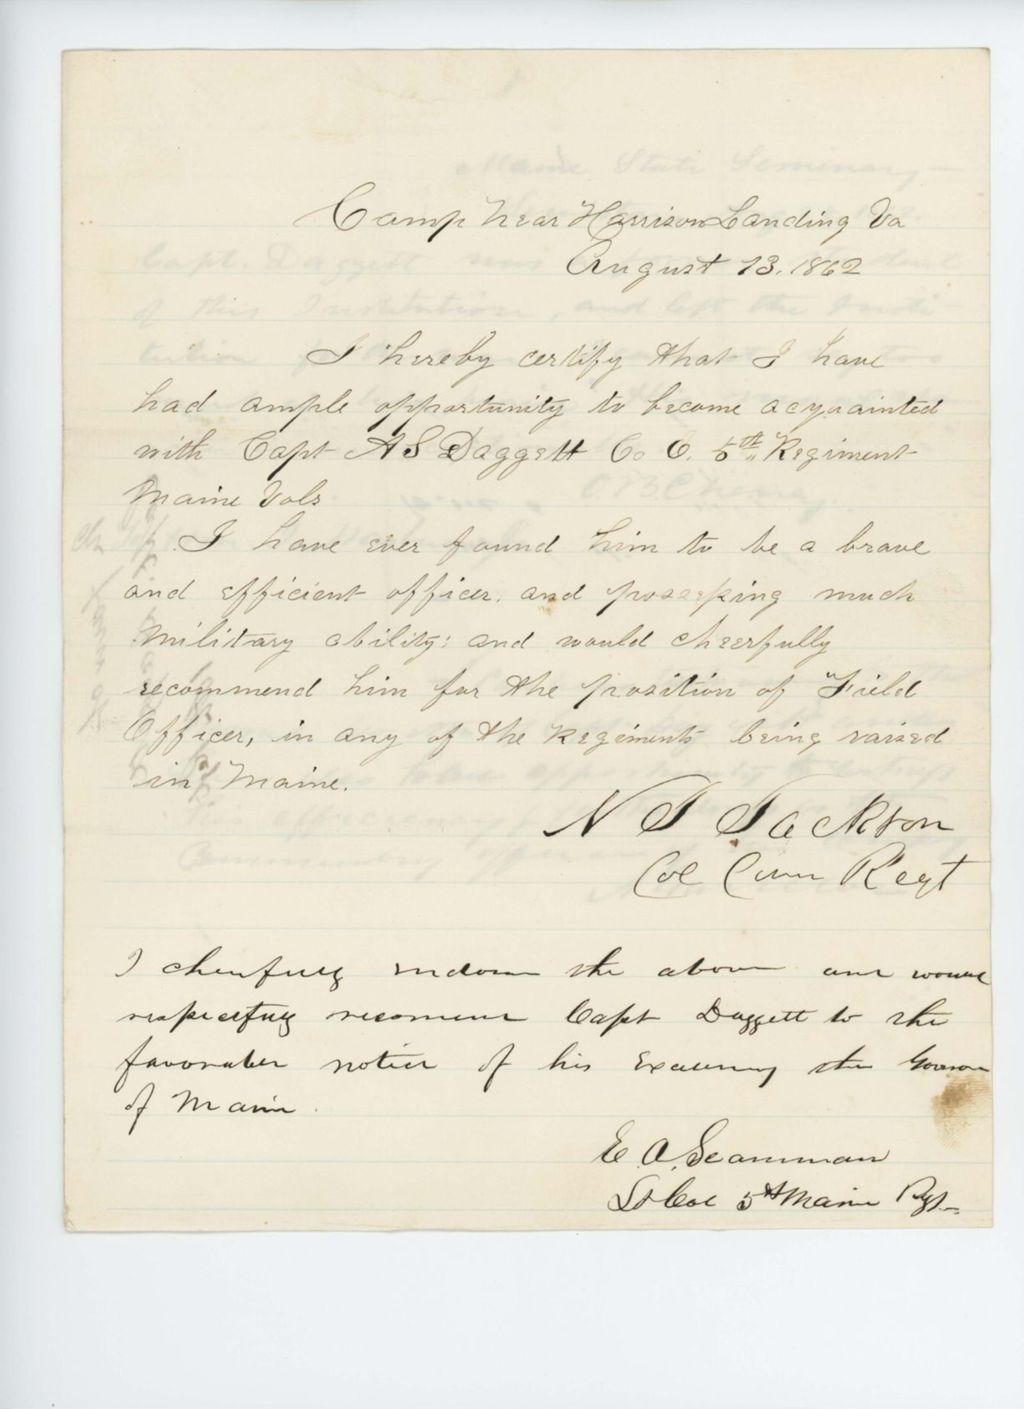 Camp Near Harrison Landing Va
August 13. 1862
I hereby certify that I have
had ample opportunity to become acquainted
with Capt A S Daggett Co E. 5th Regiment
Maine Vols
I have ever found him to be a brave
and efficient officer. and possessing much
Military ability; and would cheerfully
recommend him for the position of Field
Officer, in any of the Regiments being raised
in Maine.
N J Jackson
Col Com Regt
I cheerfully endorse the above and would
respectfully recommend Capt Daggett to the
favorable notice of his Excellency the Governor
of Maine.
E. A. Scamman
Lt Col 5th Maine Regt
Maine State Seminary
Capt. Daggett was
of this Institution, and left the Insti-
tution
O.B. Cheney